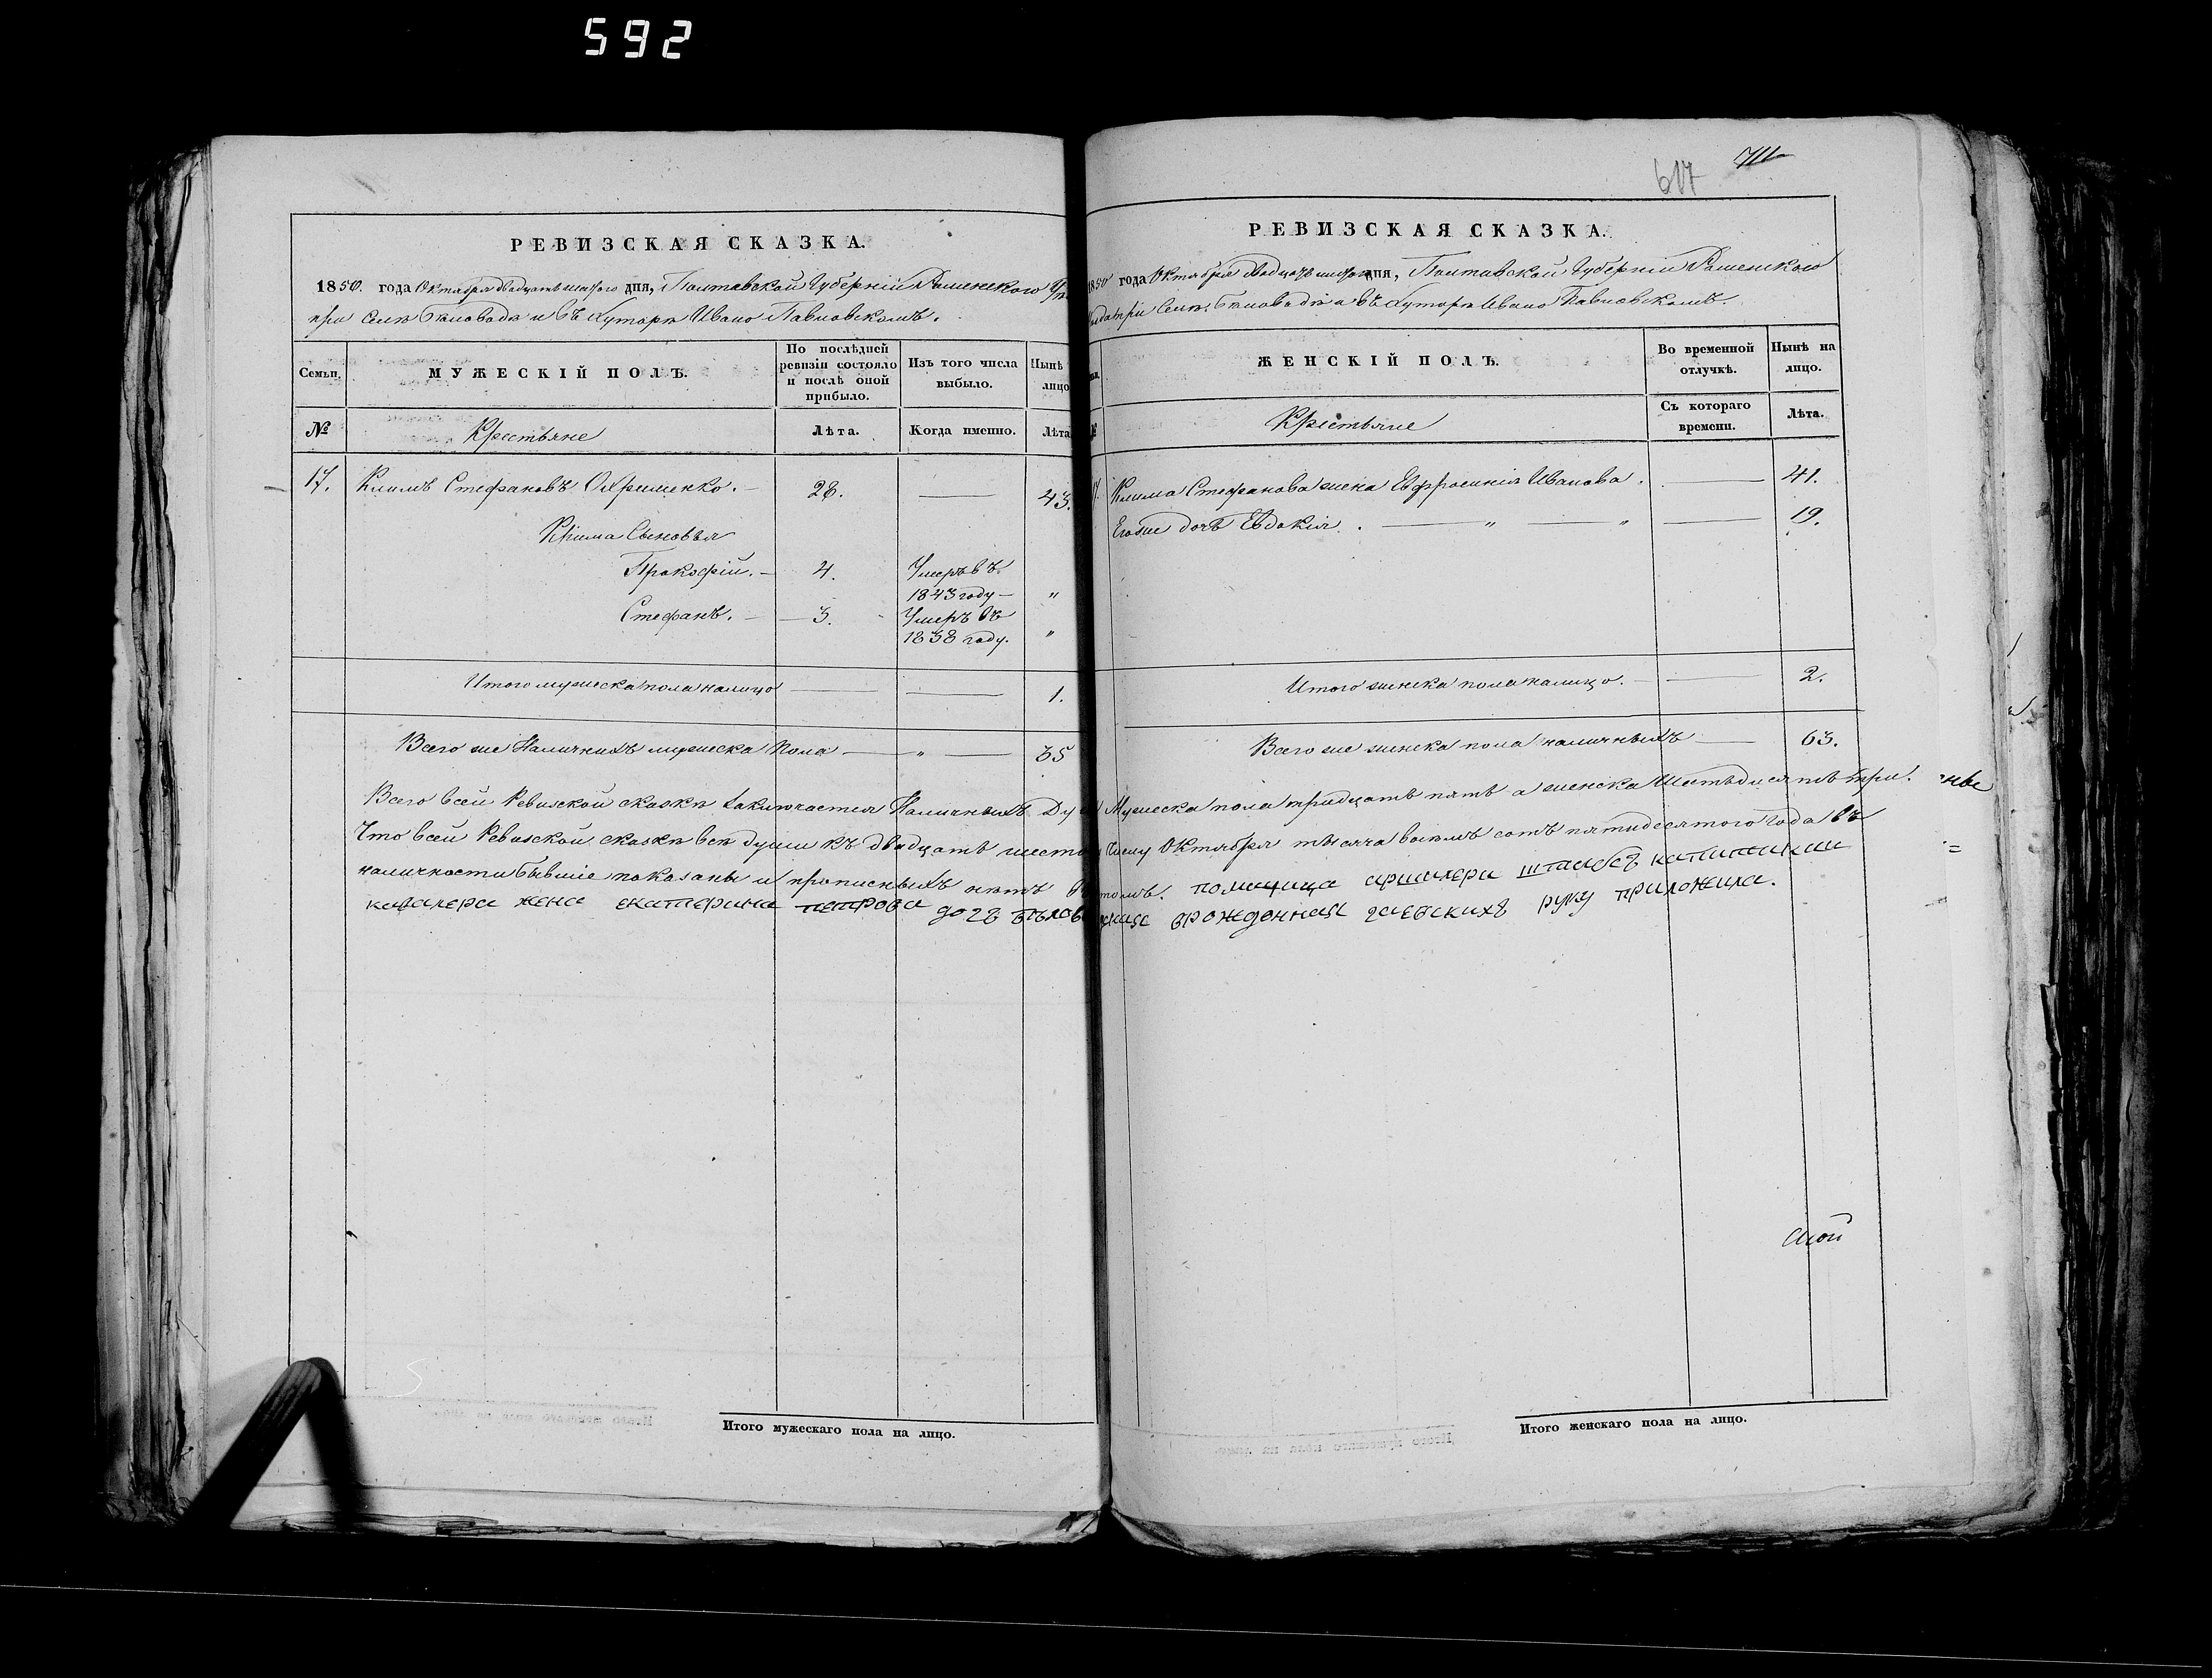 592
617
711
РЕВИЗСКАЯ СКАЗКА.
1850. года Октября двадцать шестого дня, Полтавской Губерніи Роменского
при Селѣ Бѣловодѣ и въ Хуторѣ Ивано Павловскомъ.
Семьи,
МУЖЕСКІЙ ПОЛЪ.
По послѣдней ревизіи состояло и послѣ оной прибыло.
Изъ того числа выбыло.
Нынѣ лицо
№
Крестьяне
Лѣта.
Когда именно.
Лѣта
17. Климъ Стефановъ Охрименко. — 28. — 43.
Клима Сыновья
Прокофій. — 4. Умеръ въ
1843 году — "
Стефанъ. — 3. Умеръ въ
1838 году. "
Итого мужеска пола налицо — — 1.
Всего же Наличныхъ мужеска Пола — " — 35
РЕВИЗСКАЯ СКАЗКА.
1850 года Октября двадцать шестого дня, Полтавской Губерніи Роменского
при Селѣ Бѣловодѣ и въ Хуторѣ Ивано Павловскомъ.
ЖЕНСКІЙ ПОЛЪ.
Во временной отлучкѣ.
Нынѣ на лицо.
Крестьяне
Съ котораго времени.
Лѣта.
Клима Стефанова жена Евфросинія Иванова. — 41.
Егоже дочь Евдокія. — " — " — 19.
Итого женска пола налицо. — — 2.
Всего же женска пола наличныхъ — 63.
Всего всей Ревизской сказкѣ заключается Наличныхъ Ду Мужеска пола тридцать пять а женска Шестьдесятъ три.
Что всей Ревизской сказкѣ всѣ души къ двадцать шесто числу Октября тысяча восемь сотъ пятидесятого года въ
наличности бывшіе показаны и прописныхъ нѣтъ помещица штабсъ
кавалера жена екатерина петрова дочь врожденная руку приложила.
Итого мужескаго пола на лицо.
Итого женскаго пола на лицо.